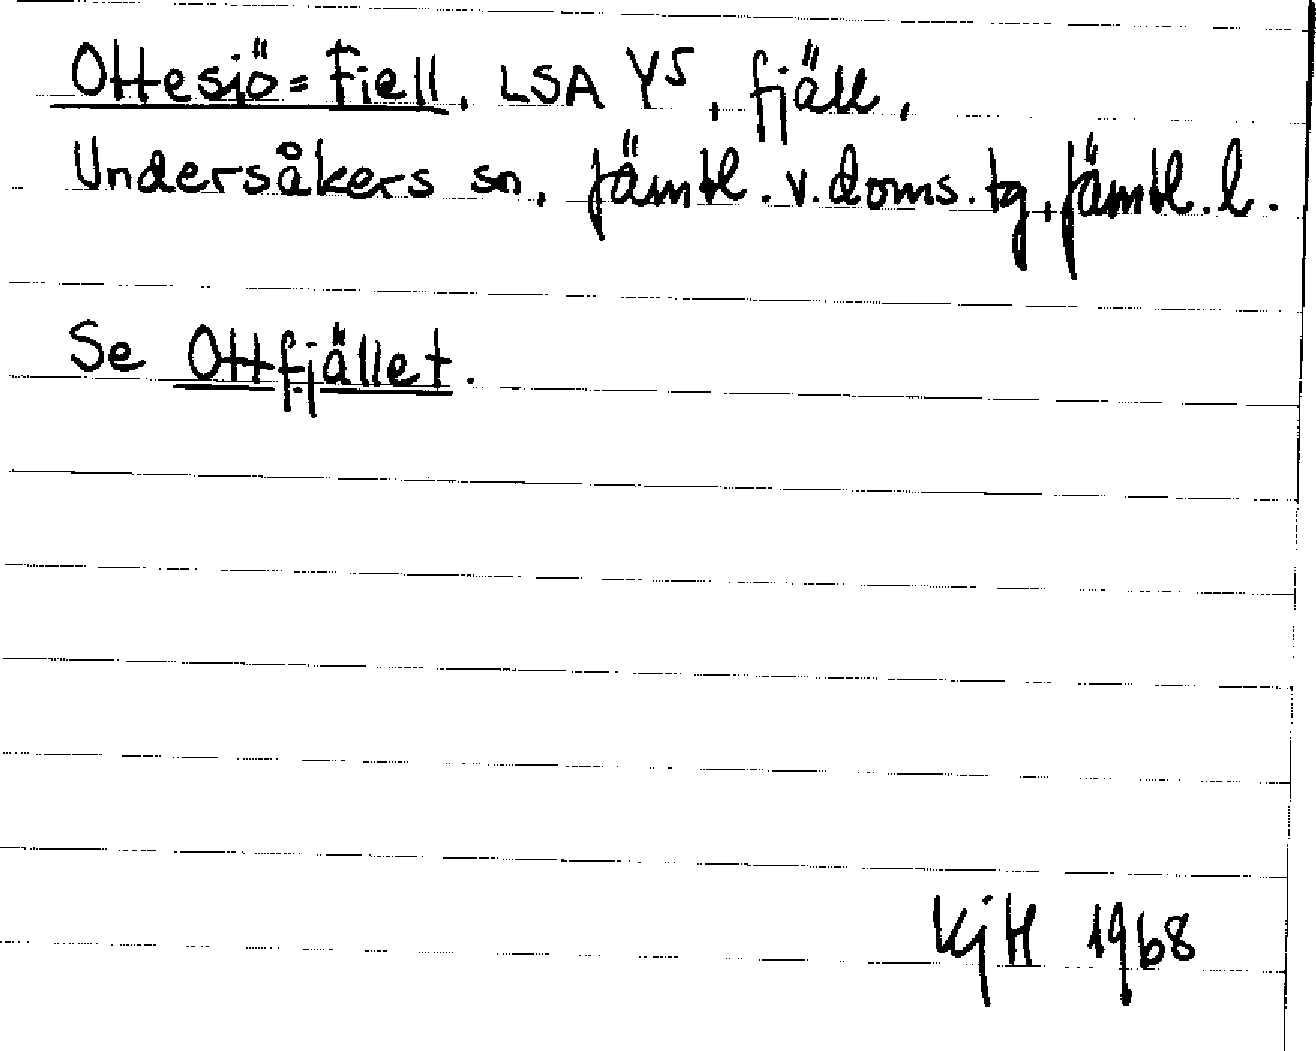 Ottesjö=Fiell, LSA Y5, fjäll,
Undersåkers sn, Jämtl. v. doms. tg, Jämtl. l.
Se Ottfjället.
KjH 1968